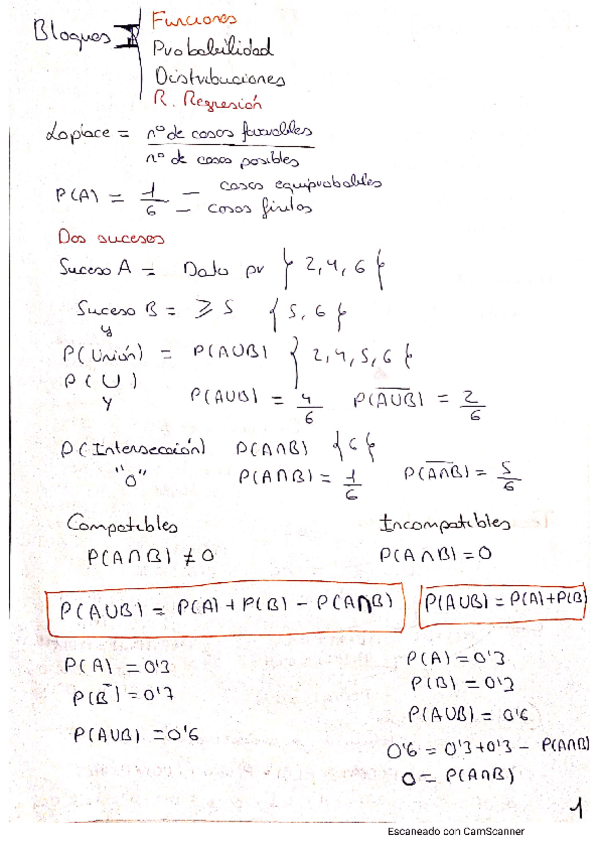 Bloques
Funciones
Probabilidad
Distribuciones
R. Regresión
Laplace = nº de casos favorables
nº de casos posibles
P(A) = 1/6 — casos equiprobables
— casos finitos
Dos sucesos
Suceso A = Dato par { 2, 4, 6 }
Suceso B = ≥ 5 { 5, 6 }
y
P(Unión) = P(A∪B) { 2, 4, 5, 6 }
P(∪)
y
P(A∪B) = 4/6 P(A̅∪̅B̅) = 2/6
P(Intersección) P(A∩B) {6}
"o"
P(A∩B) = 1/6 P(A̅∩̅B̅) = 5/6
Compatibles Incompatibles
P(A∩B) ≠ 0 P(A∩B) = 0
P(A∪B) = P(A) + P(B) - P(A∩B) P(A∪B) = P(A)+P(B)
P(A) = 0'3
P(B̅) = 0'7
P(A∪B) = 0'6
P(A) = 0'3
P(B) = 0'3
P(A∪B) = 0'6
0'6 = 0'3+0'3 - P(A∩B)
0 = P(A∩B)
1
Escaneado con CamScanner